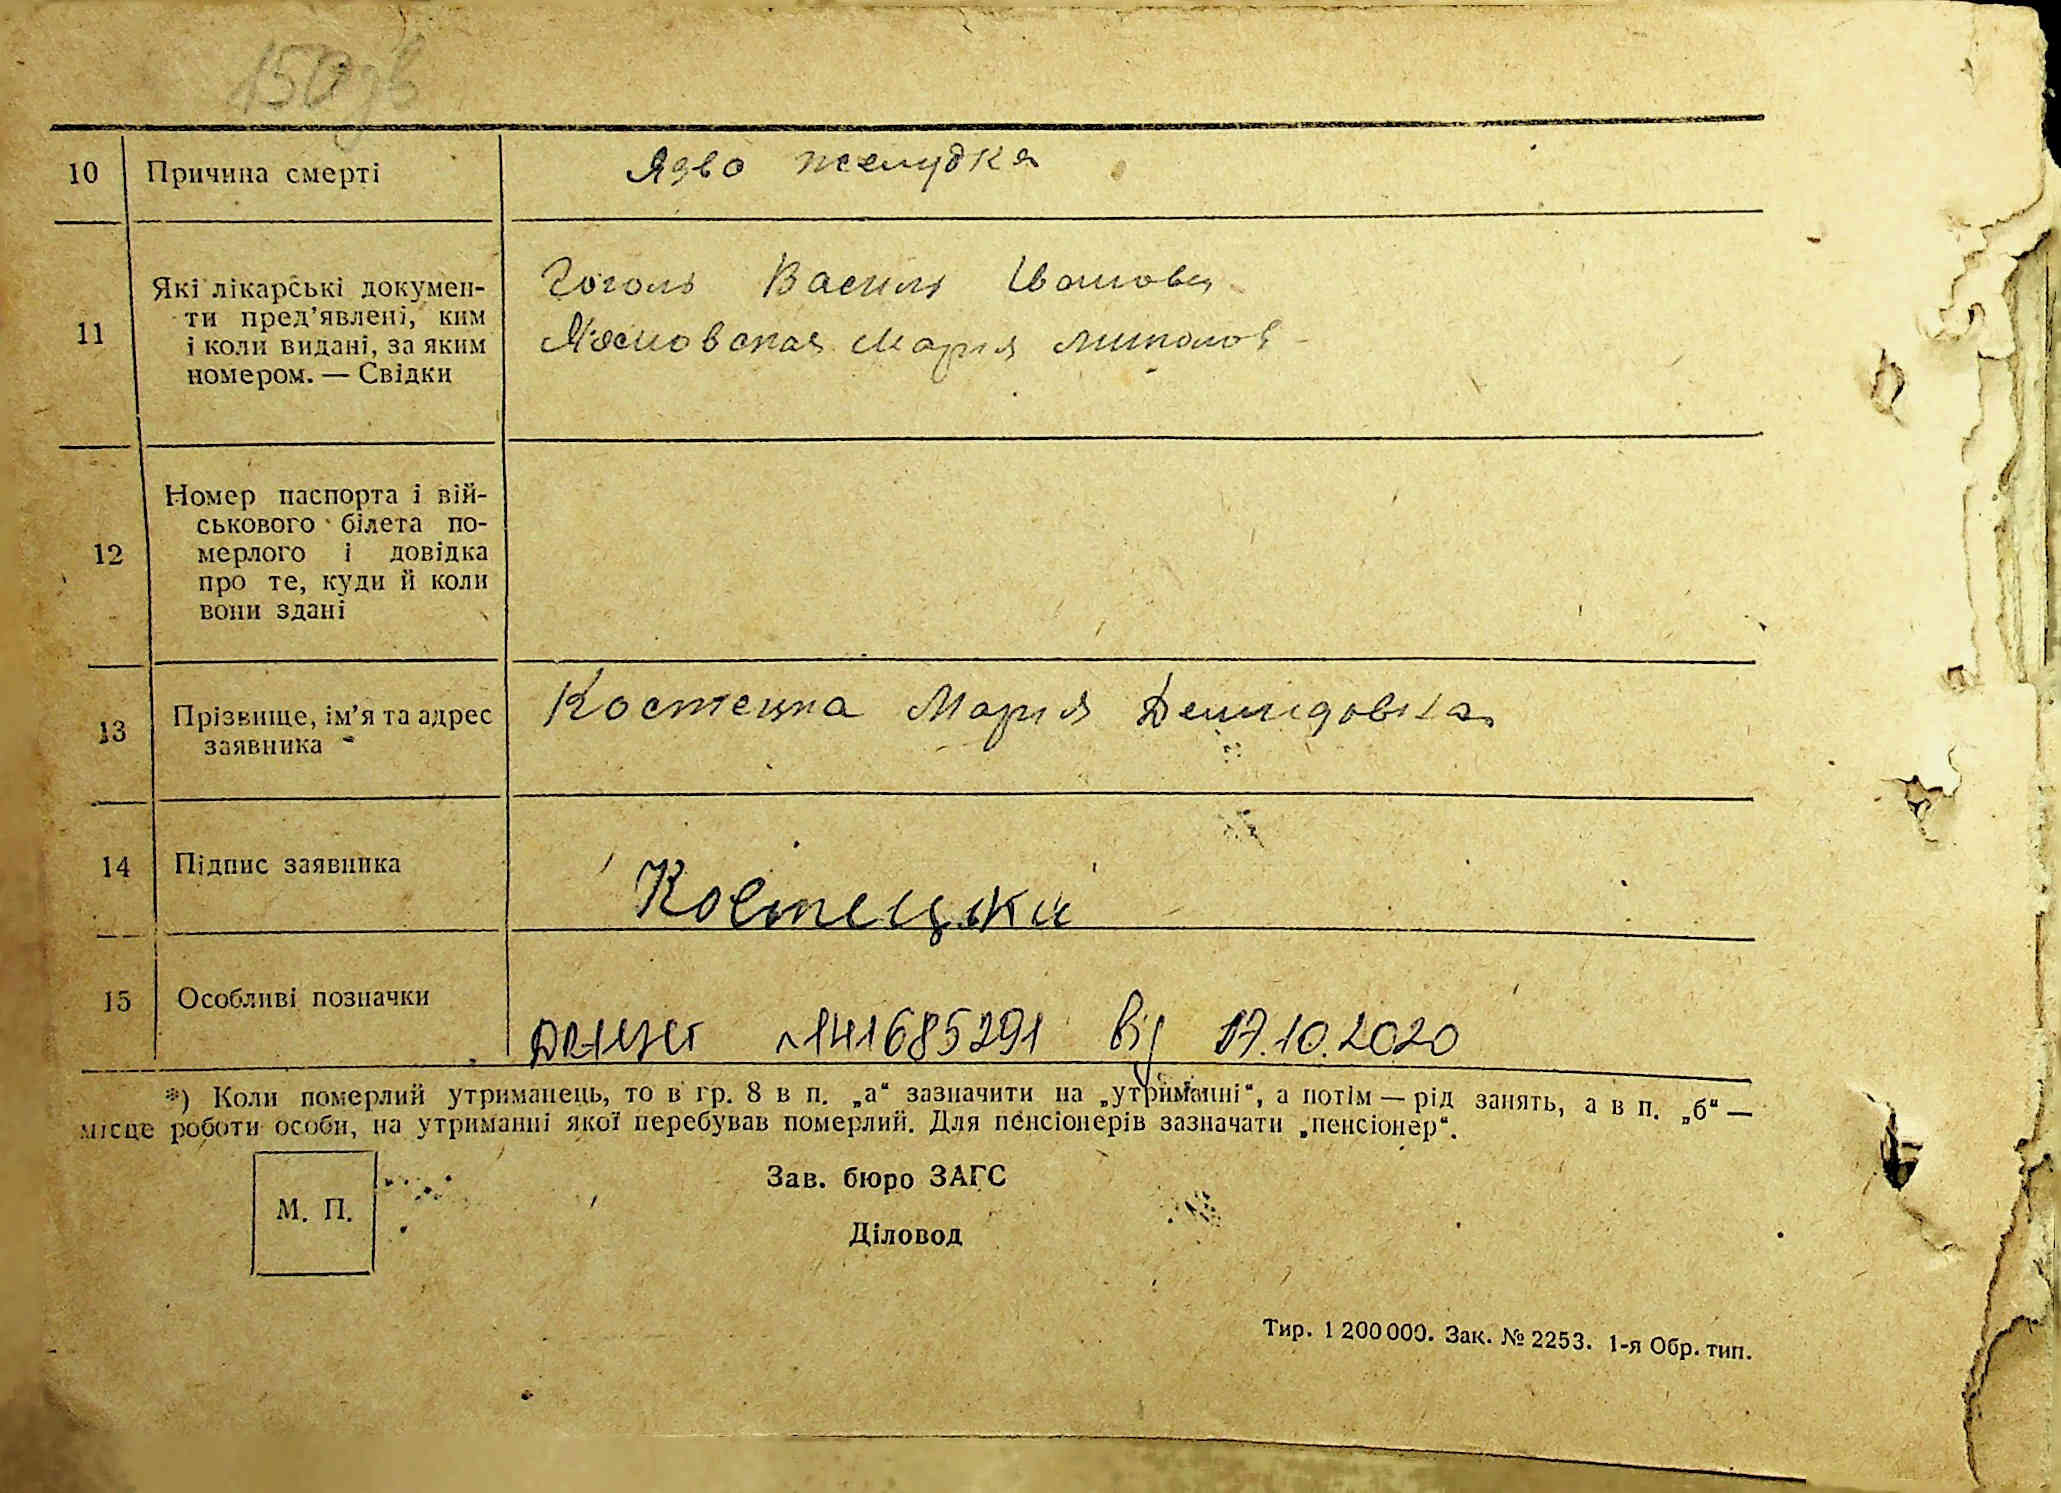 150зв
10 Причина смерті Язво желудка
11 Які лікарські докумен-
ти пред’явлені, ким
і коли видані, за яким
номером. — Свідки
Гоголь Василь Иванович
Мария
12 Номер паспорта і вій-
ськового білета по-
мерлого і довідка
про те, куди й коли
вони здані
13 Прізвище, ім’я та адрес
заявника
Костецка Мария Демидовна
14 Підпис заявника Костецки
15 Особливі позначки
ДРАЦСГ №141685291 від 17.10.2020
*) Коли померлий утриманець, то в гр. 8 в п. „а“ зазначити на „утриманні“, а потім — рід занять, а в п. „б“ —
місце роботи особи, на утриманні якої перебував померлий. Для пенсіонерів зазначати „пенсіонер“.
М. П.
Зав. бюро ЗАГС
Діловод
Тир. 1 200 000. Зак. № 2253. 1-я Обр. тип.